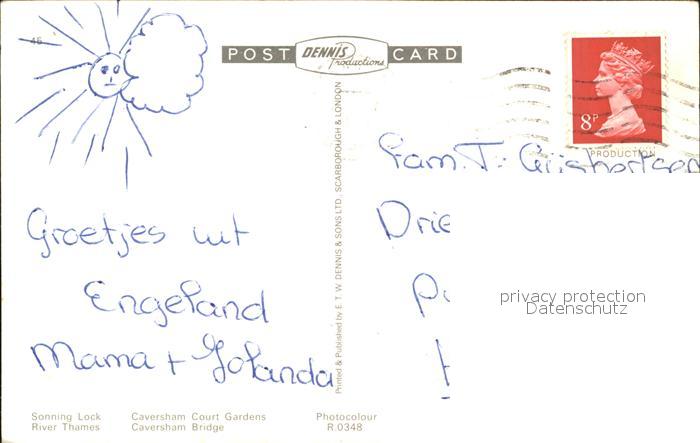 46
POST DENNIS Productions CARD
8P
PRODUCTION
Fam. T. Gijsbertsen
Drie
Groetjes uit
Engeland
Mama + Jolanda
Printed & Published by E. T. W. DENNIS & SONS LTD. SCARBOROUGH & LONDON
privacy protection
Datenschutz
Sonning Lock Caversham Court Gardens Photocolour
River Thames Caversham Bridge R.0348